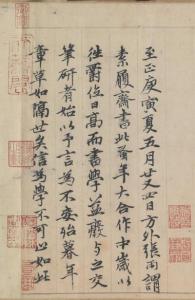 至正庚寅夏五月廿又四日方外張雨謂
素履齋書此蚤年大合作中歲以
往爵位日高而書學益廢与之交
筆研者始以予言為不妄殆暮年
章草如隔世矣信為學不可以如此